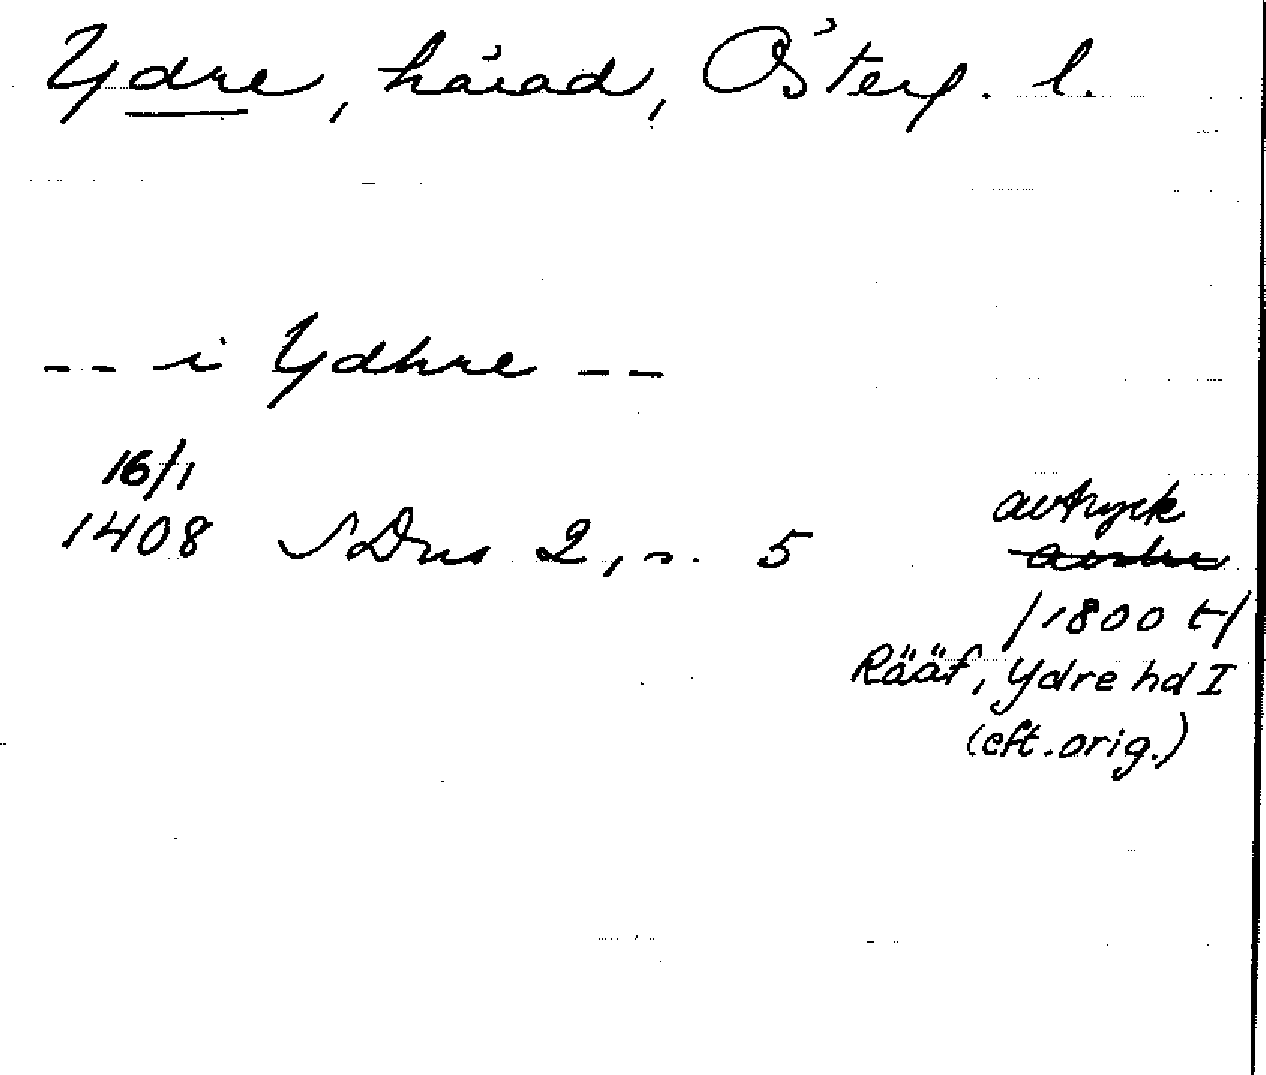 Ydre, härad, Österg. l.
-- i Ydhre --
16/1
1408 SDns 2, s. 5
avtryck
/1800 t/
Rääf, Ydre hd I
(eft. orig.)